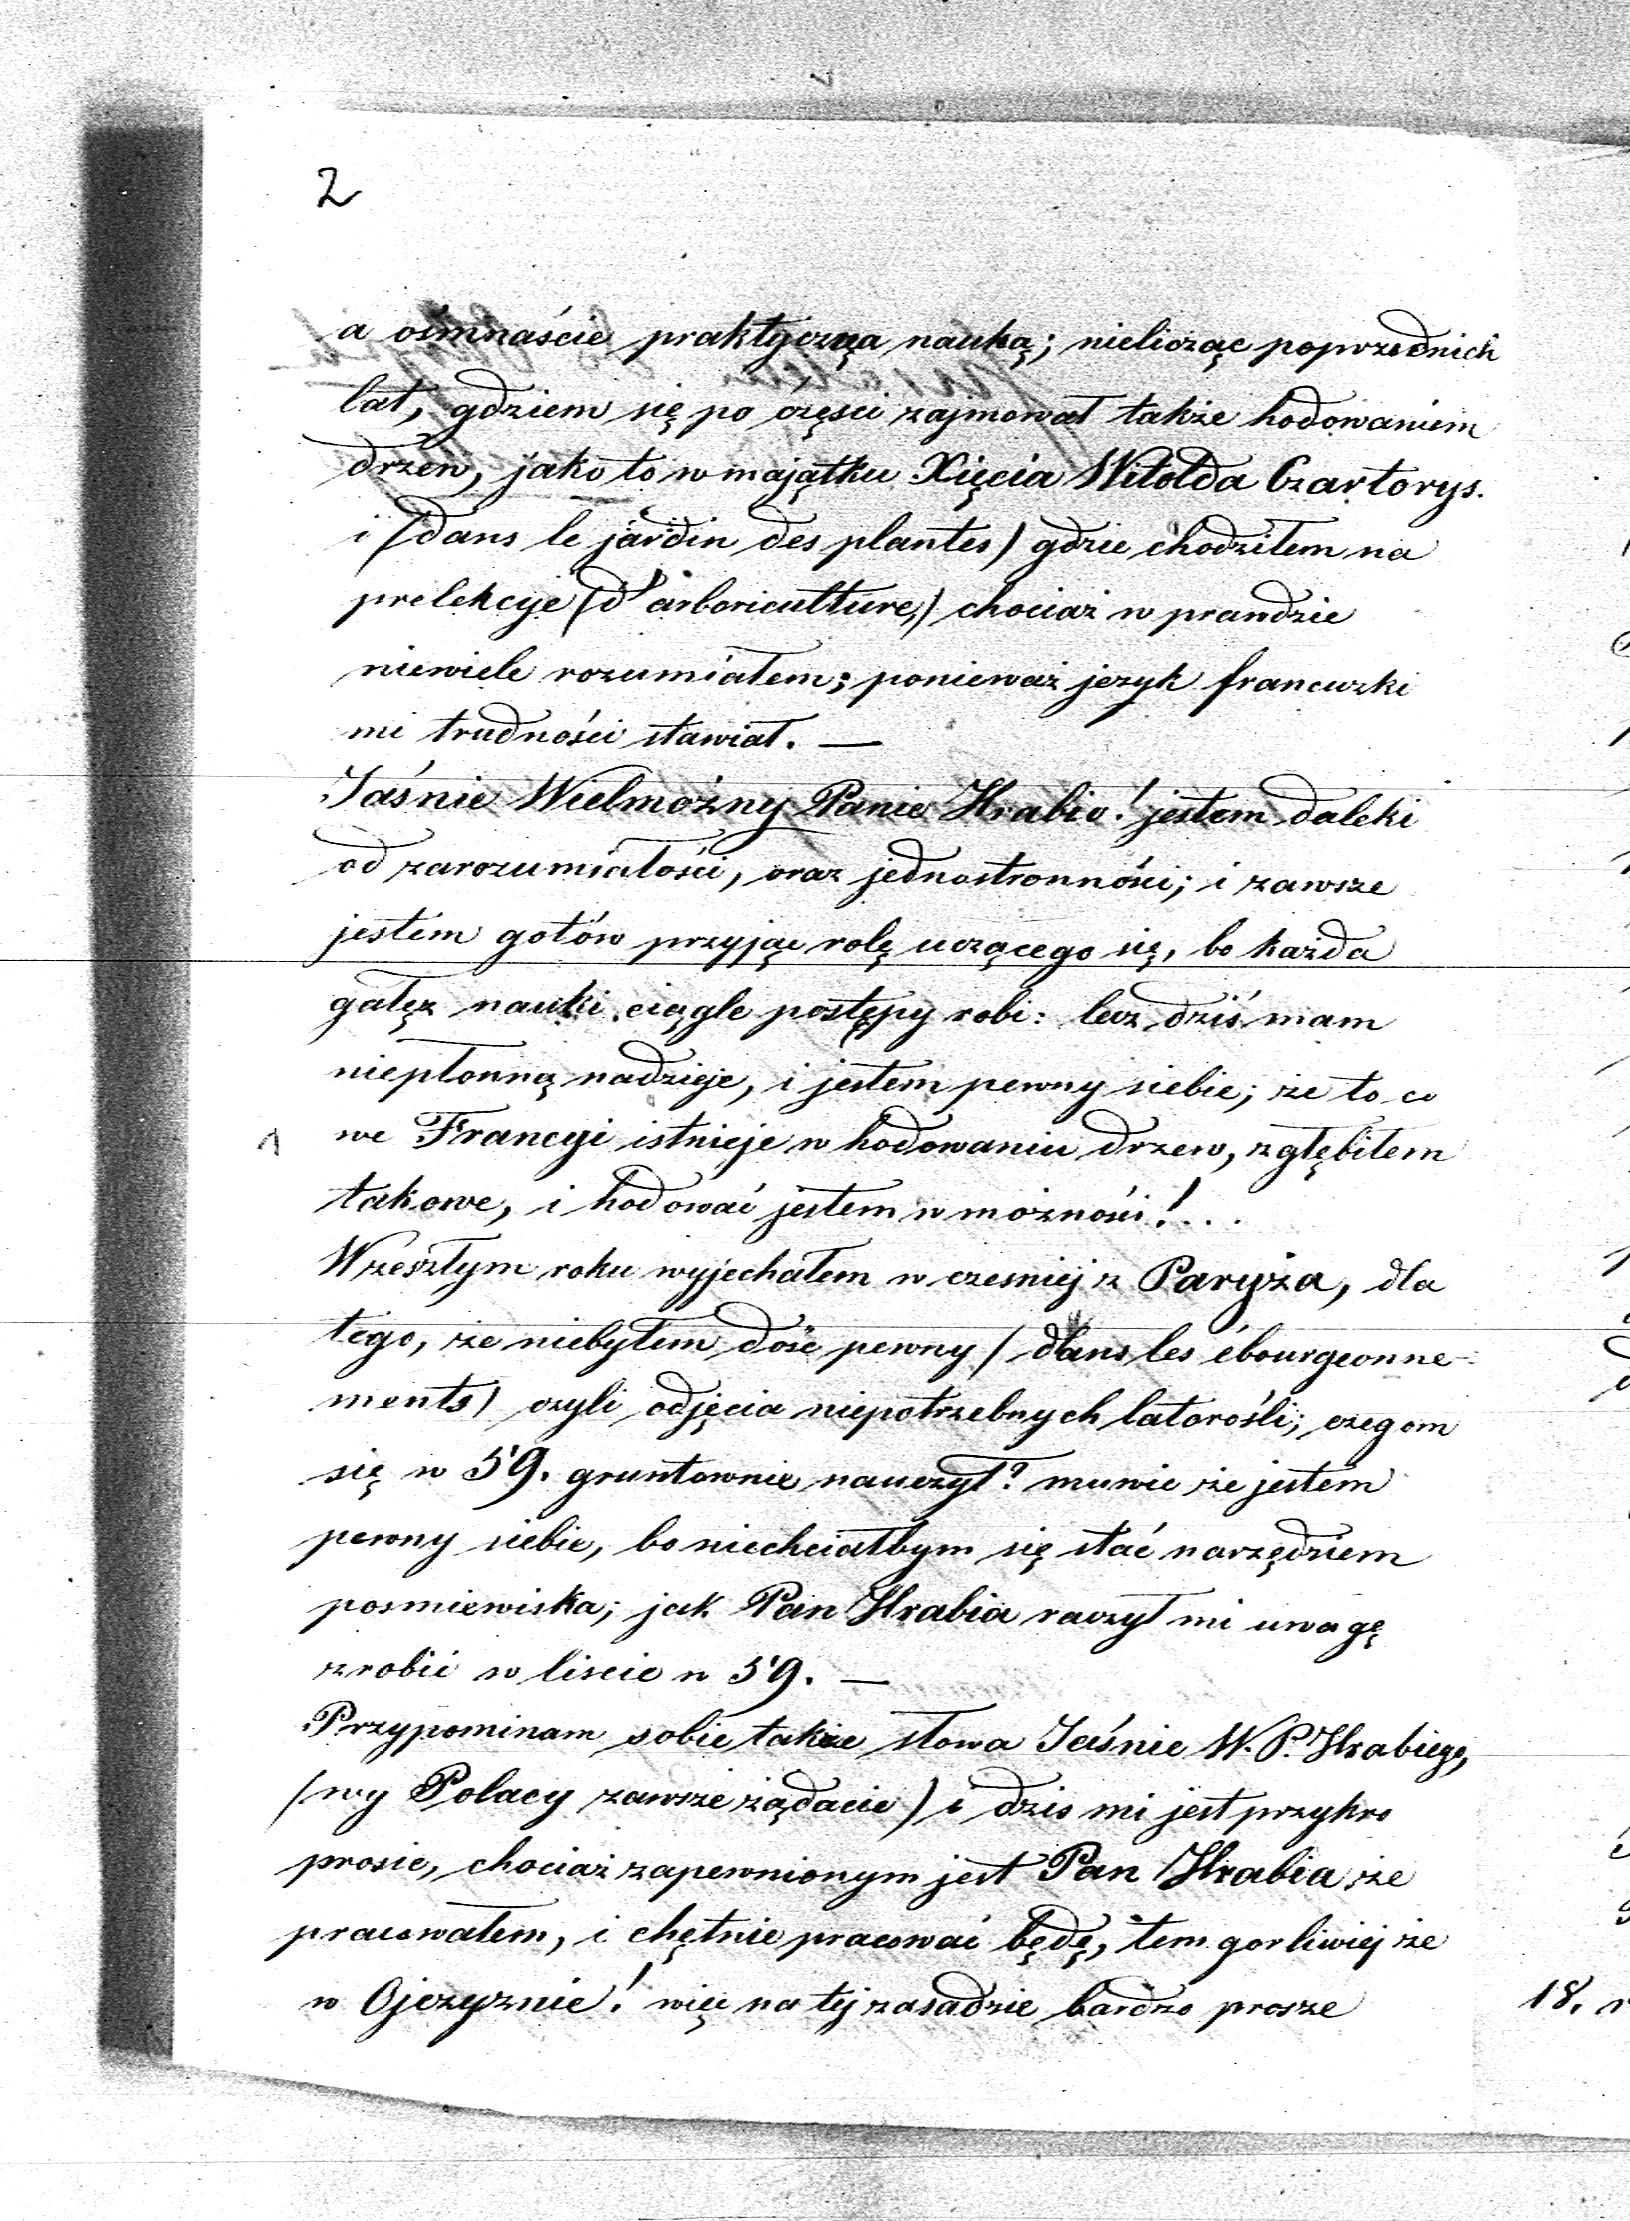 2
a ośmnaście praktyczną nauką; nielicząc poprzednich
lat, gdziem się po części zajmował także hodowaniem
drzew, jako to w majątku Xięcia Witolda Czartorys.
i (dans le jardin des plantes) gdzie chodziłem na
prelekcije (d'arboriculture,) chociaż w prawdzie
niewiele rozumiałem; ponieważ jezyk francuzki
mi trudności stawiał. —
Jaśnie Wielmożny Panie Hrabio! jestem daleki
od zarozumiałości, oraz jednostronności; i zawsze
jestem gotów przyjąc rolę uczącego się, bo każda
gałęz nauki ciągle postępy robi: lecz dziś mam
niepłonną nadzieje, i jestem pewny siebie; że to co
we Francyi istnieje w hodowaniu drzew, zgłębiłem
takowe, i hodować jestem w możności!...
W zeszłym roku wyjechałem w cześniej z Paryża, dla
tego, że niebyłem dość pewny (dans les ébourgeonne-
ments) czyli odjęcia niepotrzebnych latorośli; czegom
się w 59. gruntownie nauczył? muwie że jestem
pewny siebie, bo niechciałbym się stać narzędziem
posmiewiska; jak Pan Hrabia raczył mi uwagę
zrobić w liscie w 59. —
Przypominam sobie także słowa Jaśnie W. P. Hrabiego,
(wy Polacy zawsze żądacie) i dzis mi jest przykro
prosic, chociaż zapewnionym jest Pan Hrabia że
pracowałem, i chętnie pracować będę, tem gorliwiej że
w Ojczyznie! więc na tej zasadzie bardzo prosze
18.